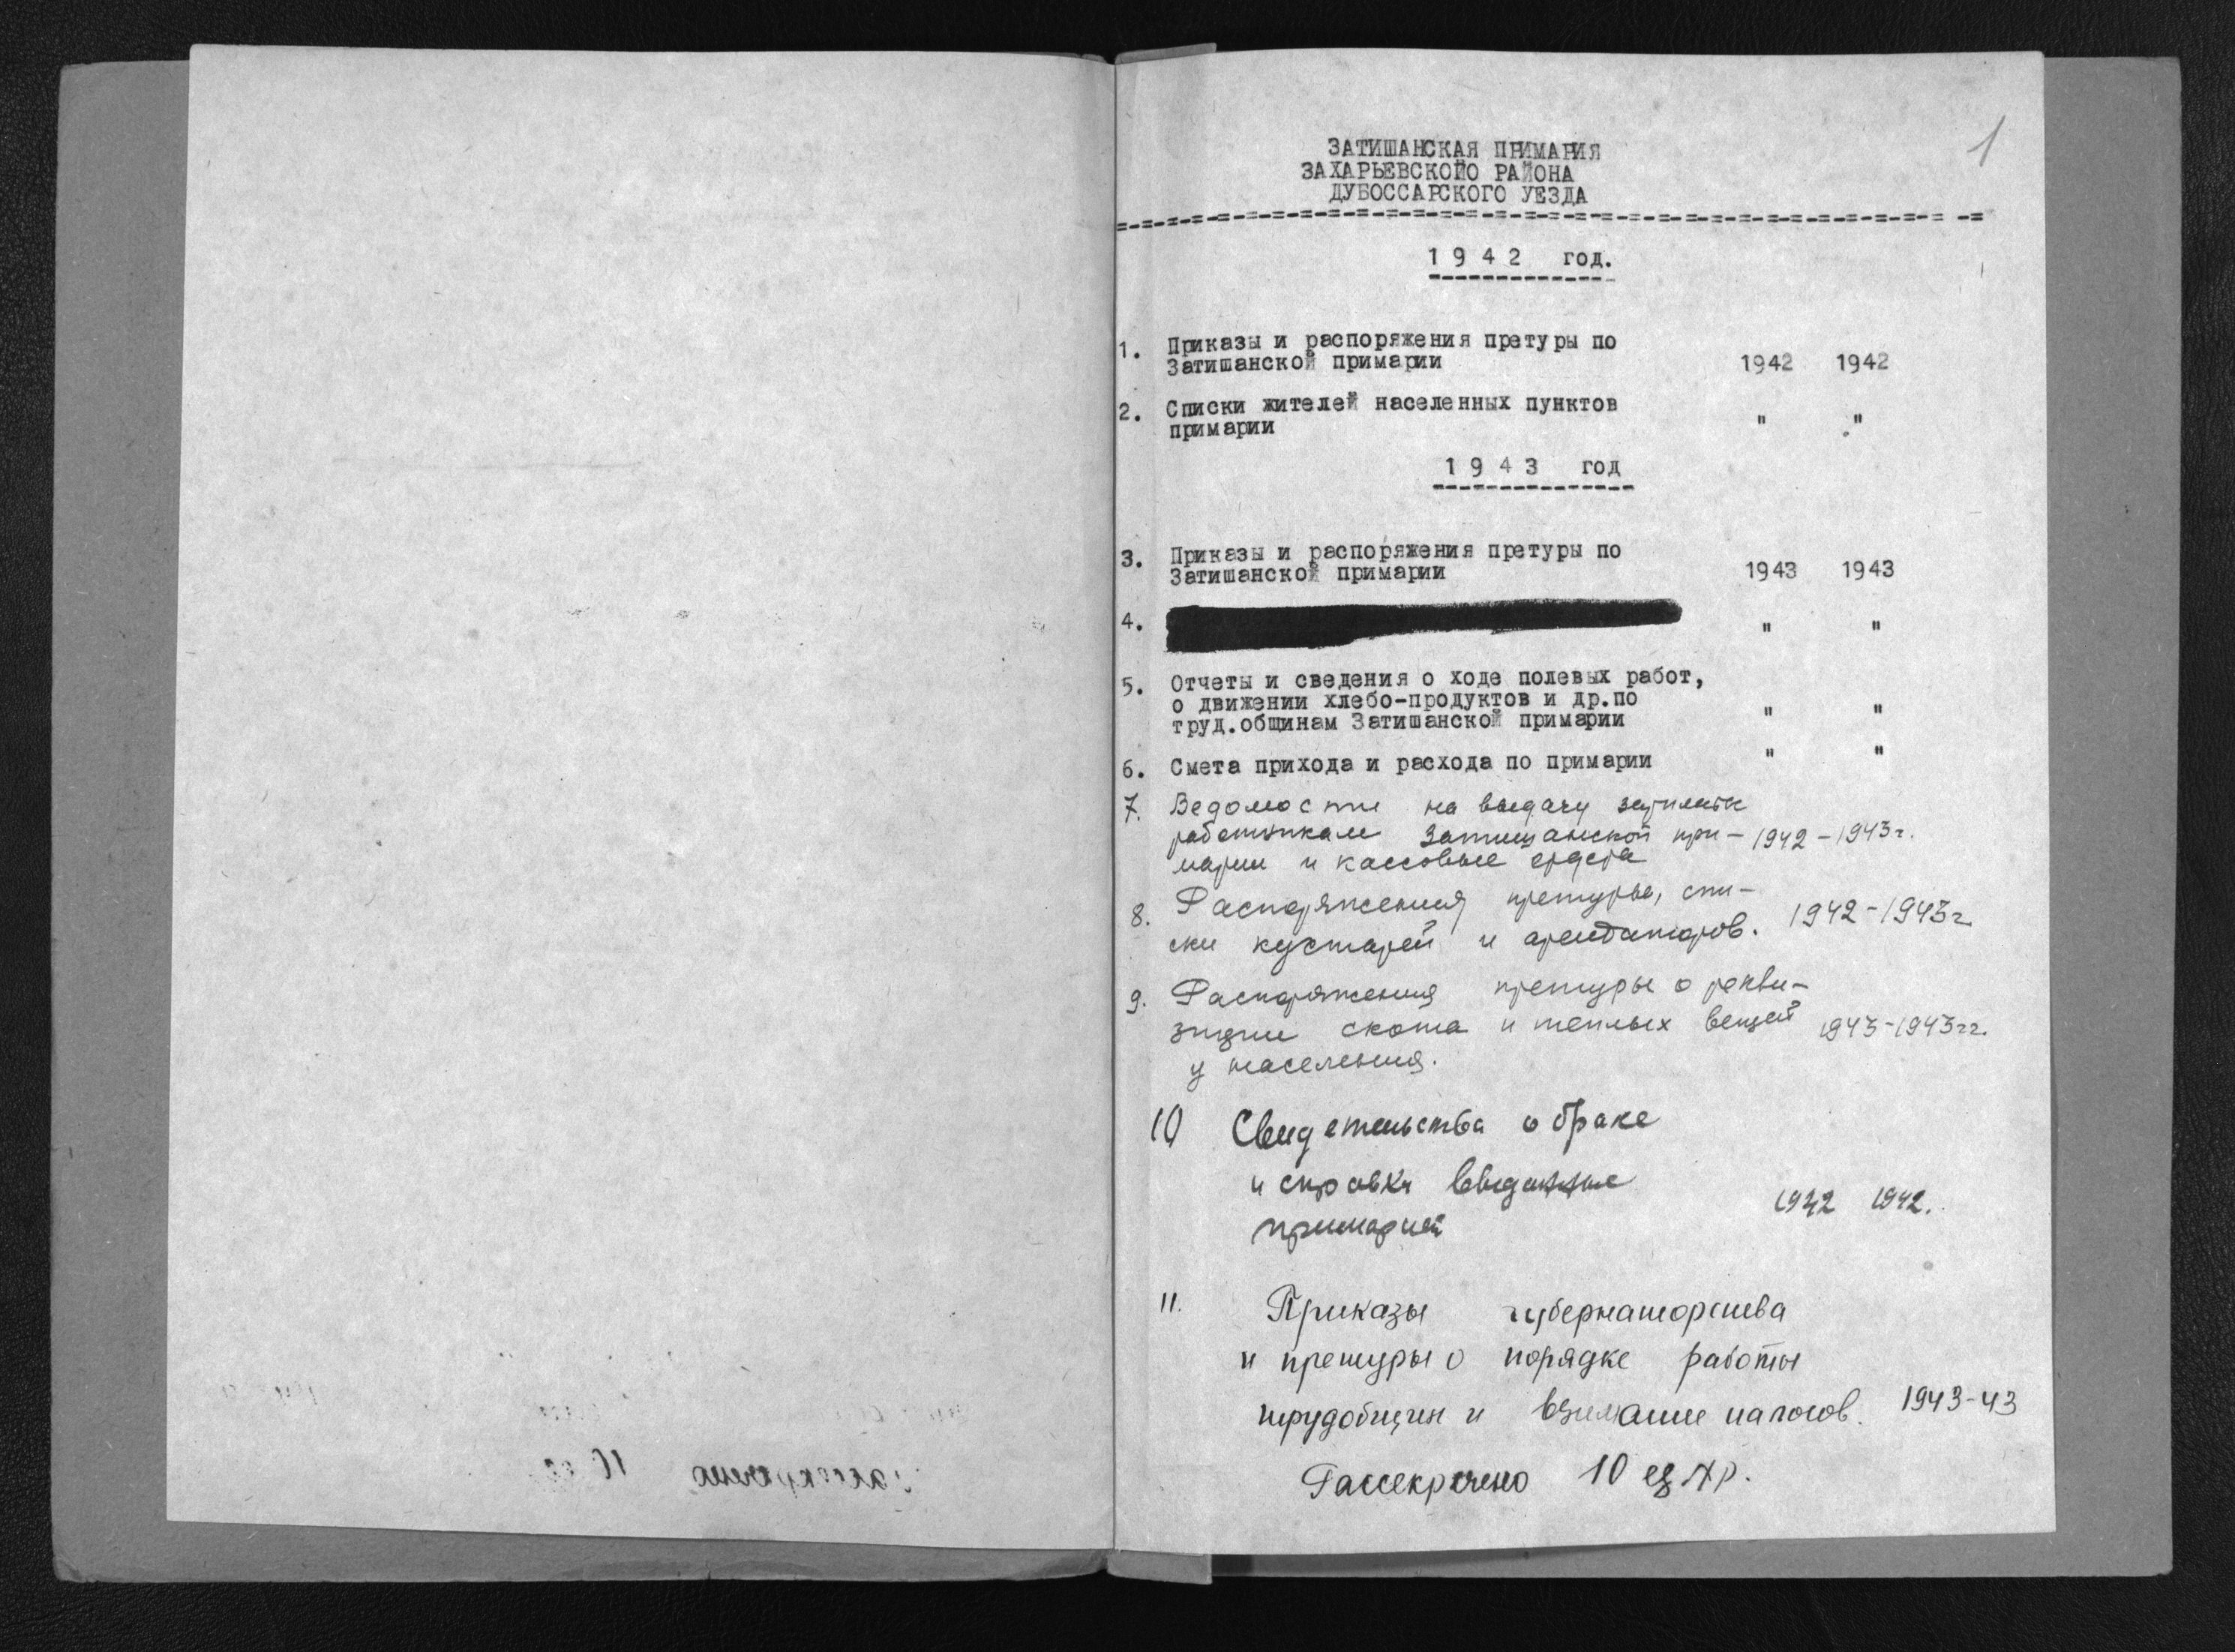 1
ЗАТИШАНСКАЯ ПРИМАРИЯ
ЗАХАРЬЕВСКОГО РАЙОНА
ДУБОССАРСКОГО УЕЗДА
1942 год.
1. Приказы и распоряжения претуры по
Затишанской примарии 1942 1942
2. Списки жителей населенных пунктов
примарии " "
1943 год
3. Приказы и распоряжения претуры по
Затишанской примарии 1943 1943
4. " "
5. Отчеты и сведения о ходе полевых работ,
о движении хлебо-продуктов и др.по
труд.общинам Затишанской примарии " "
6. Смета прихода и расхода по примарии " "
7. Ведомости на выдачу зарплаты
работникам Затишанской при- 1942-1943г.
марии и кассовые ордера
8. Распоряжения претуры, спи-
ски кустарей и арендаторов. 1942-1943г
9. Распоряжения претуры о рекви-
зиции скота и теплых вещей 1943-1943гг.
у населения.
10 Свидетельства о браке
и справки выданные
примарией 1942 1942.
11. Приказы губернаторства
и претуры о порядке работы
трудобщин и взимание налогов. 1943-43
Рассекречено 10 ед хр.